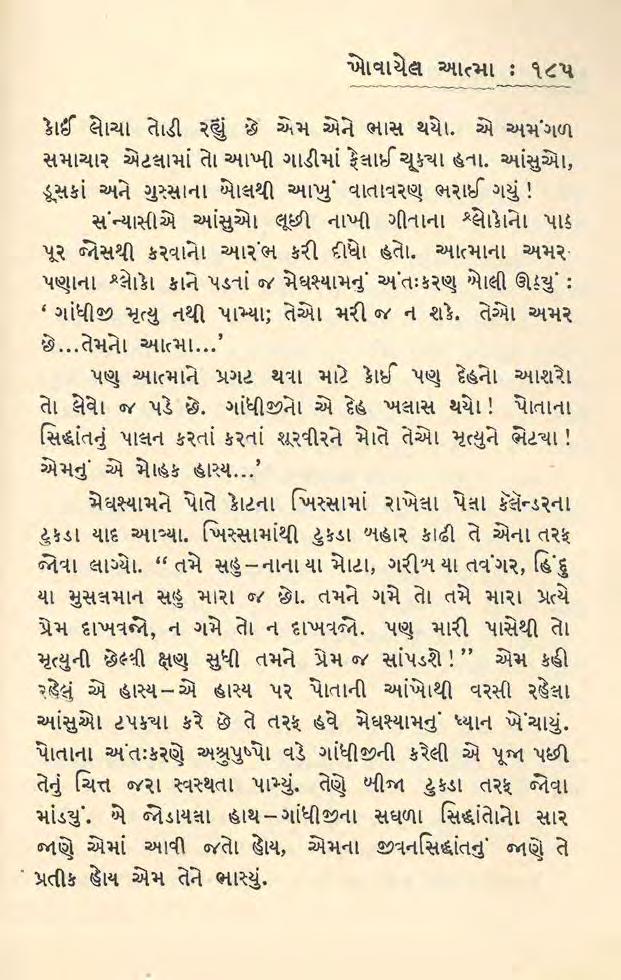 ખોવાયેલ આત્મા : ૧૮૫
કોઈ લોચા તોડી રહ્યું છે એમ એને ભાસ થયો. એ અમંગળ
સમાચાર એટલામાં તો આખી ગાડીમાં ફેલાઈ ચૂક્યા હતા. આંસુઓ,
ડૂસકાં અને ગુસ્સાના બોલથી આખું વાતાવરણ ભરાઈ ગયું !
સંન્યાસીએ આંસુઓ લૂછી નાખી ગીતાના શ્લોકોનો પાઠ
પૂર જોસથી કરવાનો આરંભ કરી દીધો હતો. આત્માના અમર-
પણાના શ્લોકો કાને પડતાં જ મેઘશ્યામનું અંતઃકરણ બોલી ઊઠ્યું :
‘ ગાંધીજી મૃત્યુ નથી પામ્યા; તેઓ મરી જ ન શકે. તેઓ અમર
છે...તેમનો આત્મા...’
પણ આત્માને પ્રગટ થવા માટે કોઈ પણ દેહનો આશરો
તો લેવો જ પડે છે. ગાંધીજીનો એ દેહ ખલાસ થયો ! પોતાના
સિદ્ધાંતનું પાલન કરતાં કરતાં શૂરવીરને મોતે તેઓ મૃત્યુને ભેટ્યા !
એમનું એ મોહક હાસ્ય...’
મેઘશ્યામને પોતે કોટના ખિસ્સામાં રાખેલા પેલા કૅલૅન્ડરના
ટુકડા યાદ આવ્યા. ખિસ્સામાંથી ટુકડા બહાર કાઢી તે એના તરફ
જોવા લાગ્યો. “ તમે સહુ–નાના યા મોટા, ગરીબ યા તવંગર, હિંદુ
યા મુસલમાન સહુ મારા જ છો. તમને ગમે તો તમે મારા પ્રત્યે
પ્રેમ દાખવજો, ન ગમે તો ન દાખવજો. પણ મારી પાસેથી તો
મૃત્યુની છેલ્લી ક્ષણ સુધી તમને પ્રેમ જ સાંપડશે ! ” એમ કહી
રહેલું એ હાસ્ય–એ હાસ્ય પર પોતાની આંખોથી વરસી રહેલા
આંસુઓ ટપક્યા કરે છે તે તરફ હવે મેઘશ્યામનું ધ્યાન ખેંચાયું.
પોતાના અંતઃકરણે અશ્રુપુષ્પો વડે ગાંધીજીની કરેલી એ પૂજા પછી
તેનું ચિત્ત જરા સ્વસ્થતા પામ્યું. તેણે બીજા ટુકડા તરફ જોવા
માંડ્યું. બે જોડાયલા હાથ–ગાંધીજીના સઘળા સિદ્ધાંતોનો સાર
જાણે એમાં આવી જતો હોય, એમના જીવનસિદ્ધાંતનું જાણે તે
પ્રતીક હોય એમ તેને ભાસ્યું.